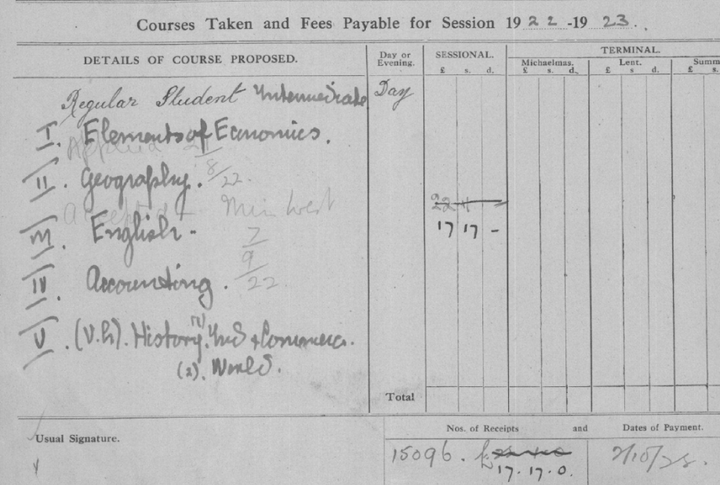 Courses Taken and Fees Payable for Session 1922-1923.
DETAILS OF COURSE PROPOSED.
Day or Evening.
SESSIONAL.
£ s. d.
TERMINAL.
Michaelmas.
£ s. d.
Lent.
£ s. d.
Summ
£ s.
Regular Student Intermediate
Day
I. Elements of Economics.
Applied 21/8/22.
II. Geography.
Accepted
17 17 -
III. English -
7/9/22
IV. Accounting.
V. (V.h). History (1). Ind & Commerce.
(2). World.
Total
Usual Signature.
Nos. of Receipts and Dates of Payment.
15096. £
17.17.0.